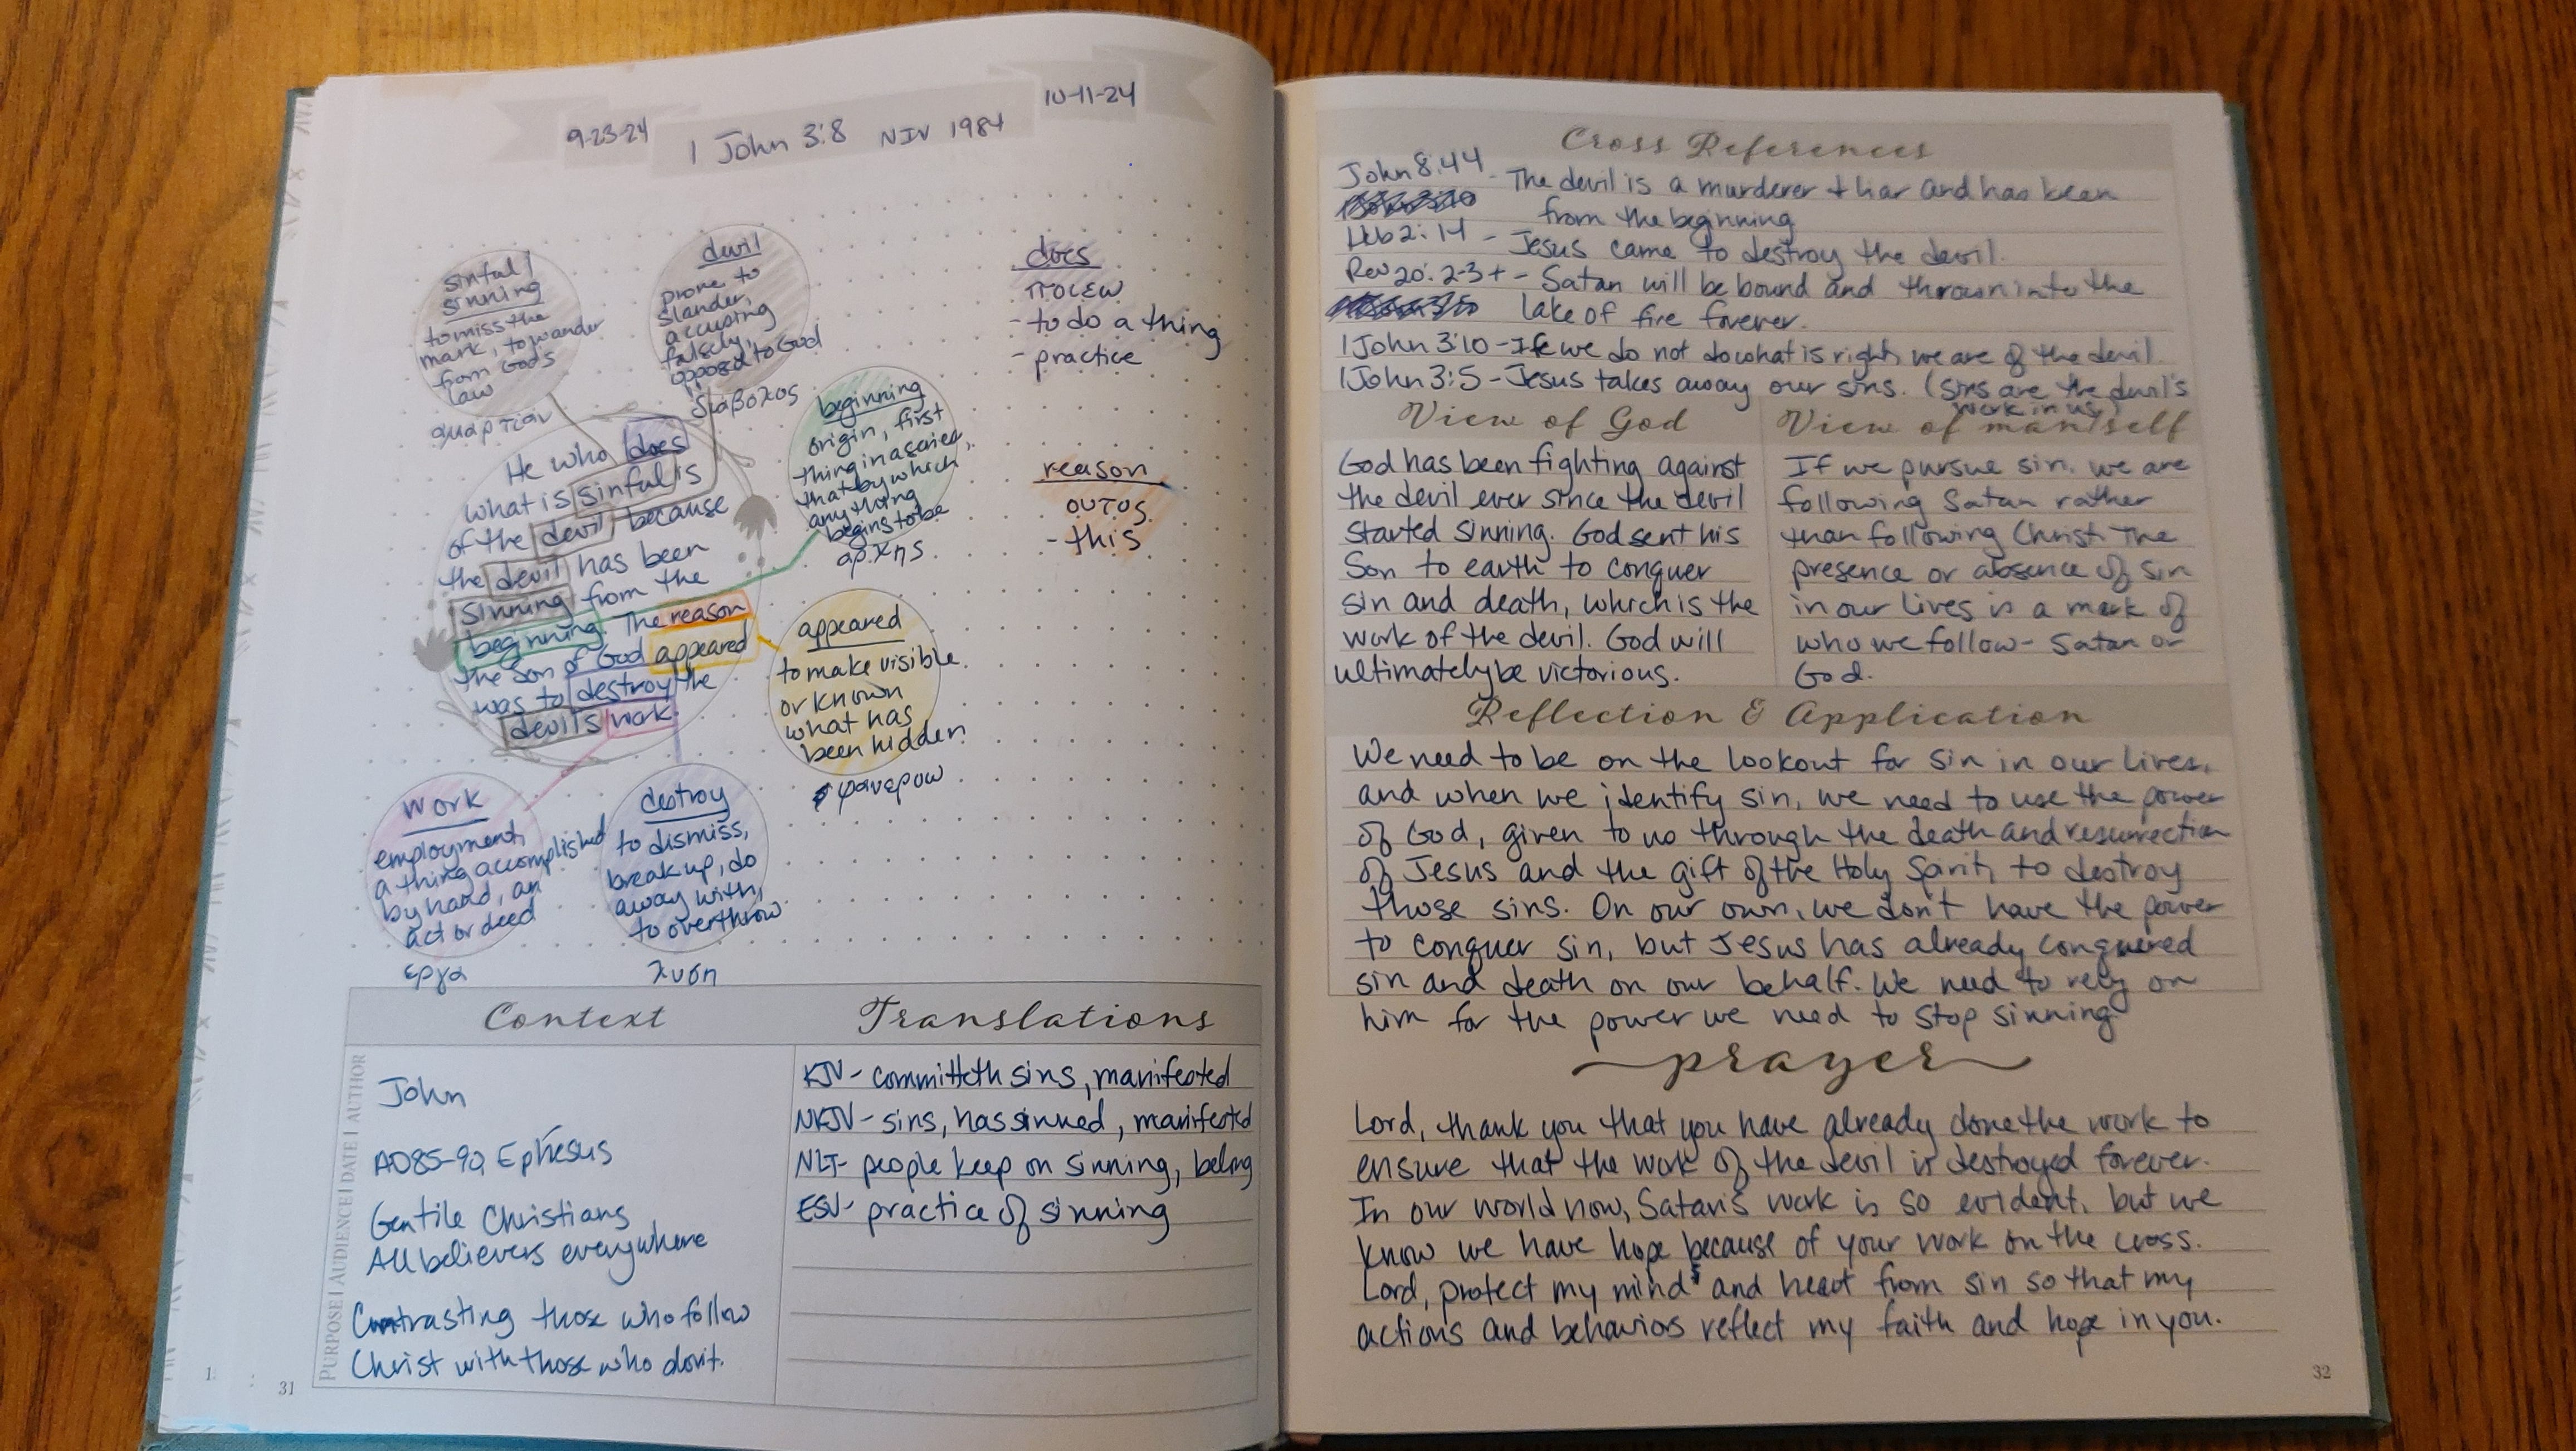 9-23-24
1 John 3:8 NIV 1984
10-11-24
sinful/
sinning
to miss the
mark, to wander
from God's
law
αμαρτιαν
devil
prone to
slander,
accusing
falsely,
opposed to God
διαβολος
does
ποιεω
- to do a thing
- practice
beginning
origin, first
thing in a series,
that by which
anything
begins to be
αρχης
reason
ουτος
- this
He who does
what is sinful is
of the devil because
the devil has been
sinning from the
beginning. The reason
the Son of God appeared
was to destroy the
devil's work.
appeared
to make visible
or known
what has
been hidden
φανερow
work
employment,
a thing accomplished
by hand, an
act or deed
εργα
destroy
to dismiss,
break up, do
away with,
to overthrow
λυση
Context
PURPOSE | AUDIENCE | DATE | AUTHOR
John
AD85-90, Ephesus
Gentile Christians
All believers everywhere
Contrasting those who follow
Christ with those who don't.
Translations
KJV- committeth sins, manifested
NKJV- sins, has sinned, manifested
NLT- people keep on sinning, belong
ESV- practice of sinning
31
Cross References
John 8:44 - The devil is a murderer + liar and has been
from the beginning
Heb 2:14 - Jesus came to destroy the devil.
Rev 20:2-3+ - Satan will be bound and thrown into the
lake of fire forever.
1 John 3:10 - If we do not do what is right, we are of the devil.
1 John 3:5 - Jesus takes away our sins. (sins are the devil's
work in us)
View of God
God has been fighting against
the devil ever since the devil
started sinning. God sent his
Son to earth to conquer
sin and death, which is the
work of the devil. God will
ultimately be victorious.
View of man/self
If we pursue sin, we are
following Satan rather
than following Christ. The
presence or absence of sin
in our lives is a mark of
who we follow - Satan or
God.
Reflection & Application
We need to be on the lookout for sin in our lives,
and when we identify sin, we need to use the power
of God, given to us through the death and resurrection
of Jesus and the gift of the Holy Spirit, to destroy
those sins. On our own, we don't have the power
to conquer sin, but Jesus has already conquered
sin and death on our behalf. We need to rely on
him for the power we need to stop sinning.
prayer
Lord, thank you that you have already done the work to
ensure that the work of the devil is destroyed forever.
In our world now, Satan's work is so evident, but we
know we have hope because of your work on the cross.
Lord, protect my mind and heart from sin so that my
actions and behaviors reflect my faith and hope in you.
32